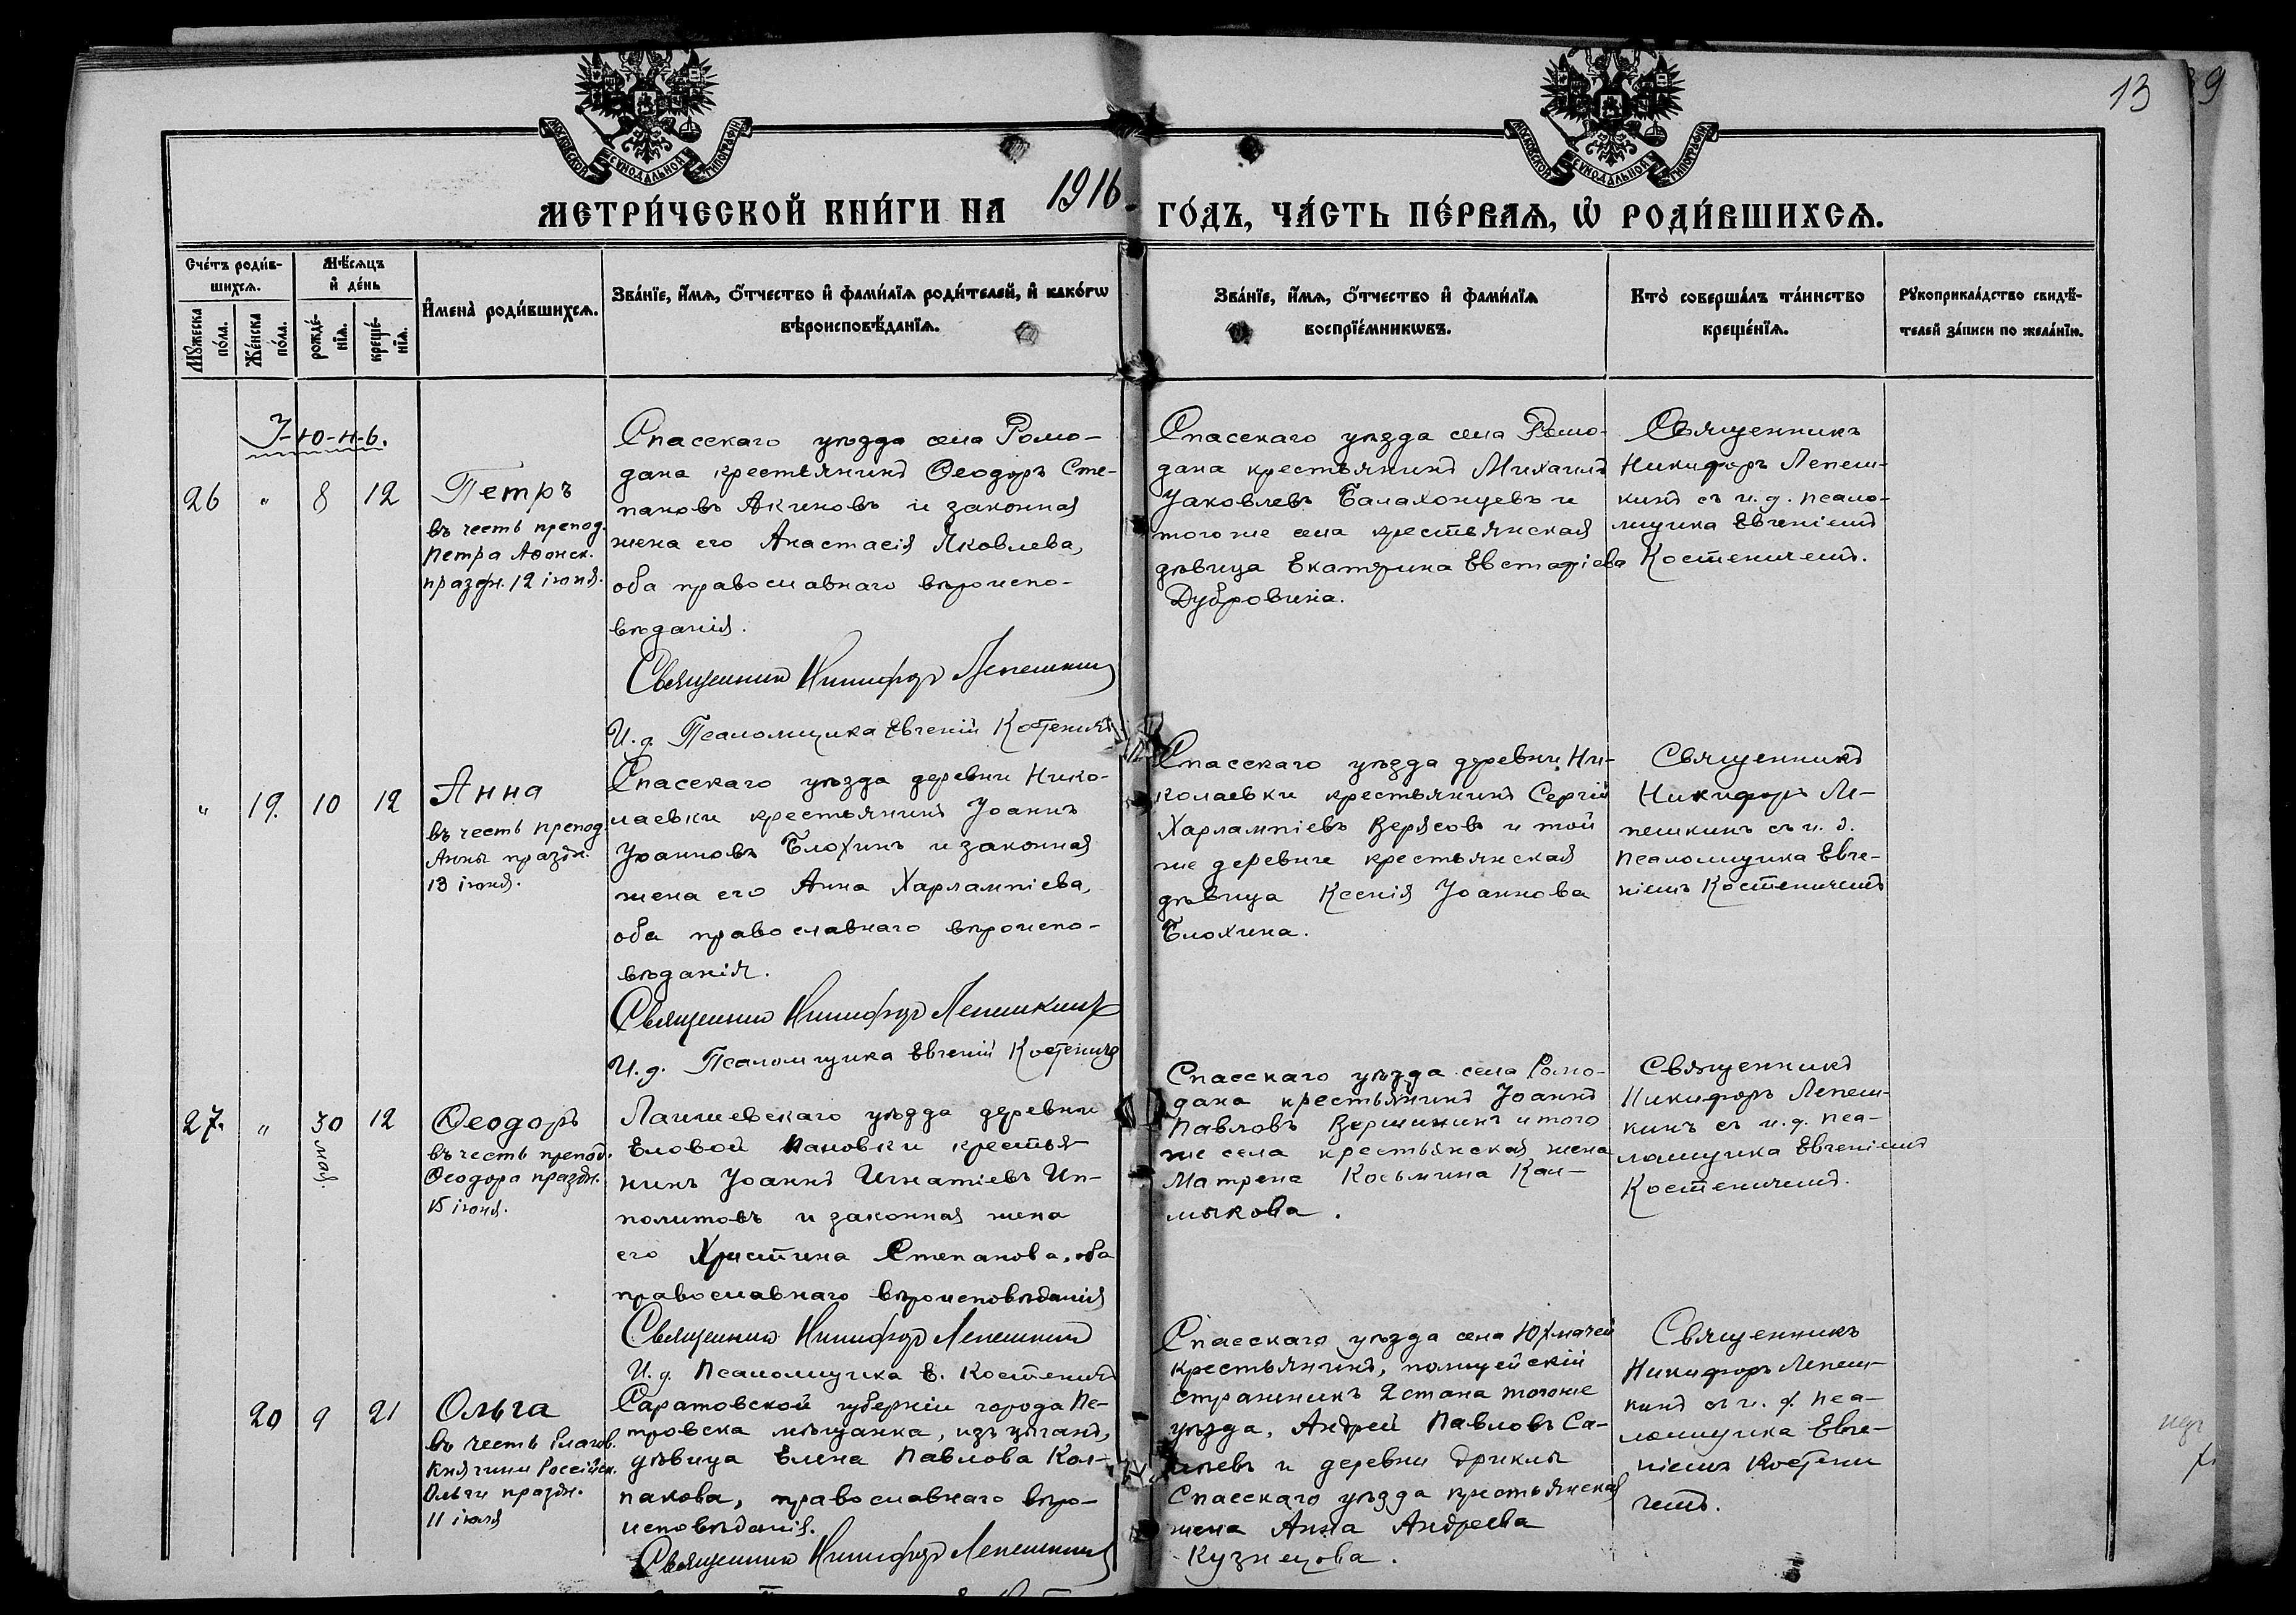 13
9
МОСКОВСКОЙ СѴНОДАЛЬНОЙ ТИПОГРАФІИ
МОСКОВСКОЙ СѴНОДАЛЬНОЙ ТИПОГРАФІИ
МЕТРИ́ЧЕСКОЙ КНИ́ГИ НА 1916 ГО́ДЪ, ЧА́СТЬ ПЕ́РВАѦ, Ѡ҆ РОДИ́ВШИХСѦ.
Сче́тъ роди́в-
шихсѧ.
Мѣ́сѧцъ
и҆ де́нь
Мꙋ́жеска
по́ла.
Же́нска
по́ла.
рожде́-
нїѧ.
креще́-
нїѧ.
И҆мена̀ роди́вшихсѧ.
Зва́нїе, и҆́мѧ, ѻ҆́тчество и҆ фами́лїѧ роди́телей, и҆ како́гѡ
вѣроисповѣ́данїѧ.
Зва́нїе, и҆́мѧ, ѻ҆́тчество и҆ фами́лїѧ
воспрїе́мникѡвъ.
Кто̀ соверша́лъ та́инство
креще́нїѧ.
Рꙋкоприкла́дство свидѣ́-
телей за́писи по жела́нїю.
І-ю-н-ь.
26 " 8 12
Петръ
въ честь препод.
Петра Аѳонск.
празdн. 12 іюня.
Спасскаго уѣзда села Ромо-
дана крестьянинъ Ѳеодоръ Сте-
пановъ Акиновъ и законная
жена его Анастасія Яковлева,
оба православнаго вѣроиспо-
вѣданія.
Священникъ Никифоръ Лепешкинъ
И. д. Псаломщика Евгеній Костеничъ
Спасскаго уѣзда села Ромо-
дана крестьянинъ Михаилъ
Іаковлевъ Балахонцевъ и
того же села крестьянская
дѣвица Екатерина Евстафіева
Дубровина.
Священникъ
Никифоръ Лепеш-
кинъ съ и. д. псало-
мщика Евгеніемъ
Костеничемъ.
" 19. 10 12
Анна
въ честь препод.
Анны праздн.
13 іюня.
Спасскаго уѣзда деревни Нико-
лаевки крестьянинъ Іоаннъ
Іоанновъ Блохинъ и законная
жена его Анна Харлампіева,
оба православнаго вѣроиспо-
вѣданія.
Священникъ Никифоръ Лепешкинъ
И. д. Псаломщика Евгеній Костеничъ
Спасскаго уѣзда деревни Ни-
колаевки крестьянинъ Сергій
Харлампіевъ Верясовъ и той
же деревни крестьянская
дѣвица Ксенія Іоаннова
Блохина.
Священникъ
Никифоръ Ле-
пешкинъ съ и. д.
псаломщика Евге-
ніемъ Костеничемъ
27. " 30 мая. 12
Ѳеодоръ
въ честь препод.
Ѳеодора праздн.
15 іюня.
Лаишевскаго уѣзда деревни
Еловой Пановки крестья-
нинъ Іоаннъ Игнатіевъ Ип-
политовъ и законная жена
его Христина Степанова, оба
православнаго вѣроисповѣданія
Священникъ Никифоръ Лепешкинъ
И. д. Псаломщика Е. Костеничъ
Спасскаго уѣзда села Ромо-
дана крестьянинъ Іоаннъ
Павловъ Вершининъ и того
же села крестьянская жена
Матрена Косьмина Кал-
мыкова.
Священникъ
Никифоръ Лепеш-
кинъ съ и. д. пса-
ломщика Евгеніемъ
Костеничемъ.
20 9 21
Ольга
въ честь благов.
Княгини Россійск.
Ольги праздн.
11 іюля
Саратовской губерніи города Пе-
тровска мѣщанка, изъ цыганъ,
дѣвица Елена Павлова Кол-
пакова, православнаго вѣро-
исповѣданія.
Священникъ Никифоръ Лепешкинъ
Спасскаго уѣзда села Юхмачей
крестьянинъ, полицейскій
стражникъ 2 стана того же
уѣзда, Андрей Павловъ Са-
и деревни
Спасскаго уѣзда крестьянская
жена Анна Андреева
Кузнецова.
Священникъ
Никифоръ Лепеш-
кинъ съ и. д. пса-
ломщика Евге-
ніемъ Костени
чемъ.